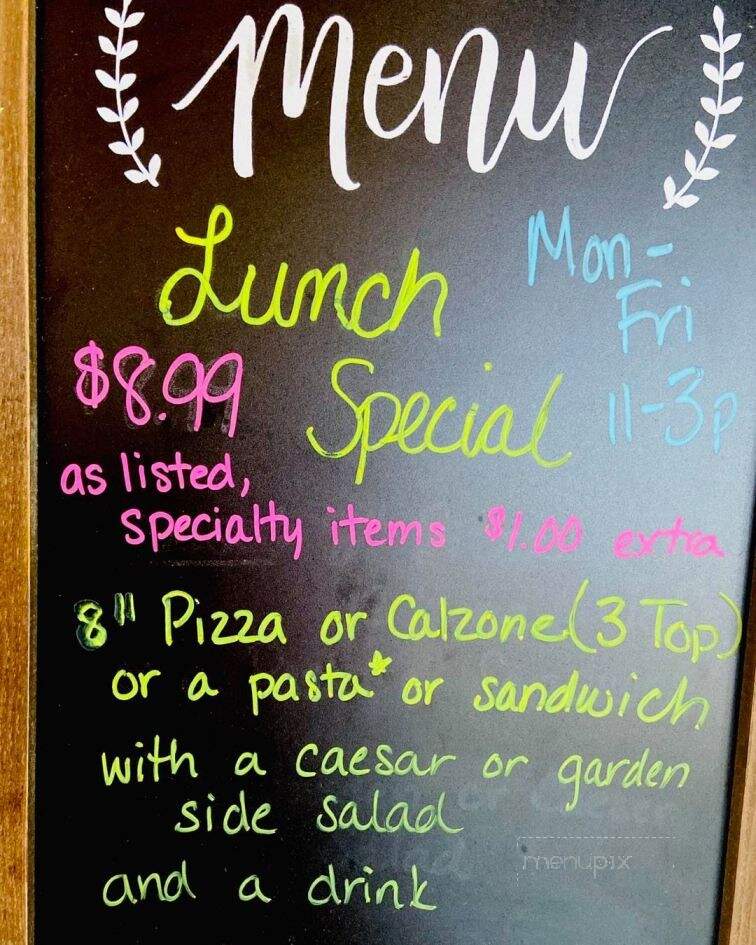 Menu
Lunch
Mon-
Fri
$8.99
Special
11-3p
as listed,
specialty items $1.00 extra
8" Pizza or Calzone (3 Top)
or a pasta* or sandwich
with a caesar or garden
side salad
and a drink
menupix